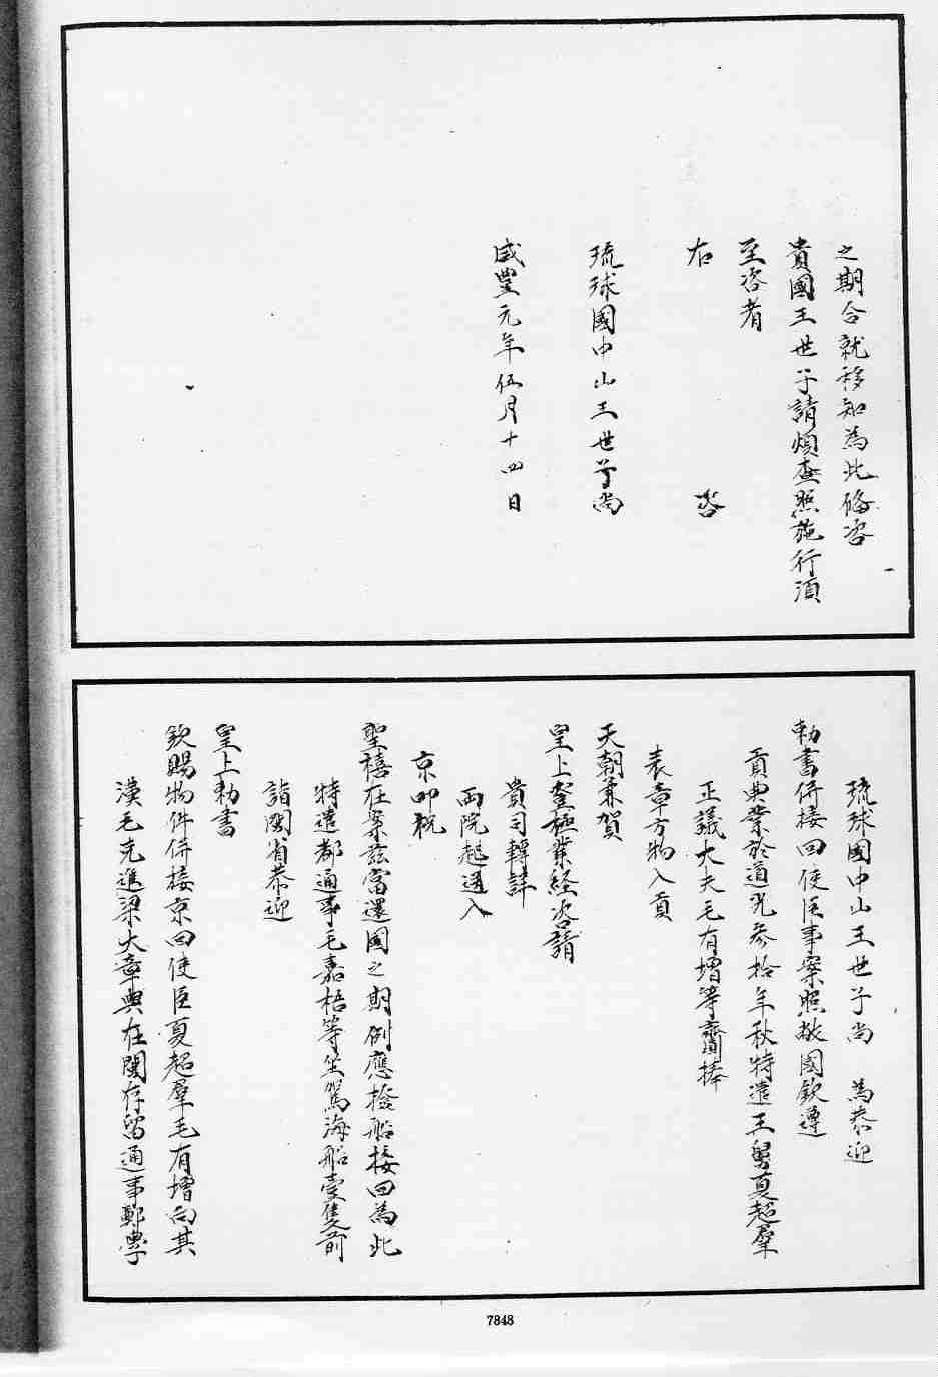 之期合就移知為此備咨
貴國王世子請煩查照施行須
至咨者
右　　　咨
琉球國中山王世子尚
咸豐元年伍月十四日
琉球國中山王世子尚　為恭迎
勅書併接回使臣事案照敝國欽遵
貢典業於道光參拾年秋特遣王舅夏超羣
正議大夫毛有增等齎捧
表章方物入貢
天朝兼賀
皇上登極業經咨請
貴司轉詳
兩院起送入
京叩祝
聖禧在案茲當還國之期例應撥船接回為此
特遣都通事毛嘉梧等坐駕海船壹隻前
詣閩省恭迎
皇上勅書
欽賜物件併接京回使臣夏超羣毛有增向其
漢毛克進梁大章與在閩存留通事鄭學
7848